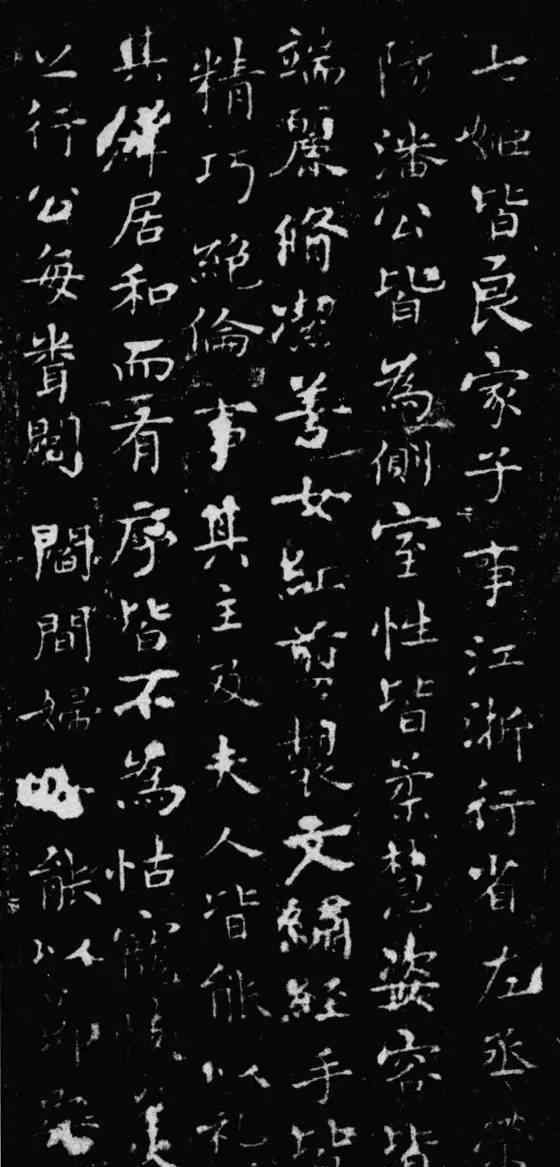 七姬皆良家子事江浙行省左丞榮
陽潘公皆為側室性皆柔慧姿容皆
端麗脩潔善女紅剪製文繡經手皆
精巧絕倫事其主及夫人皆能以礼
其儕居和而有序皆不為怙寵忮美
之行公每聞閭閻間婦能以